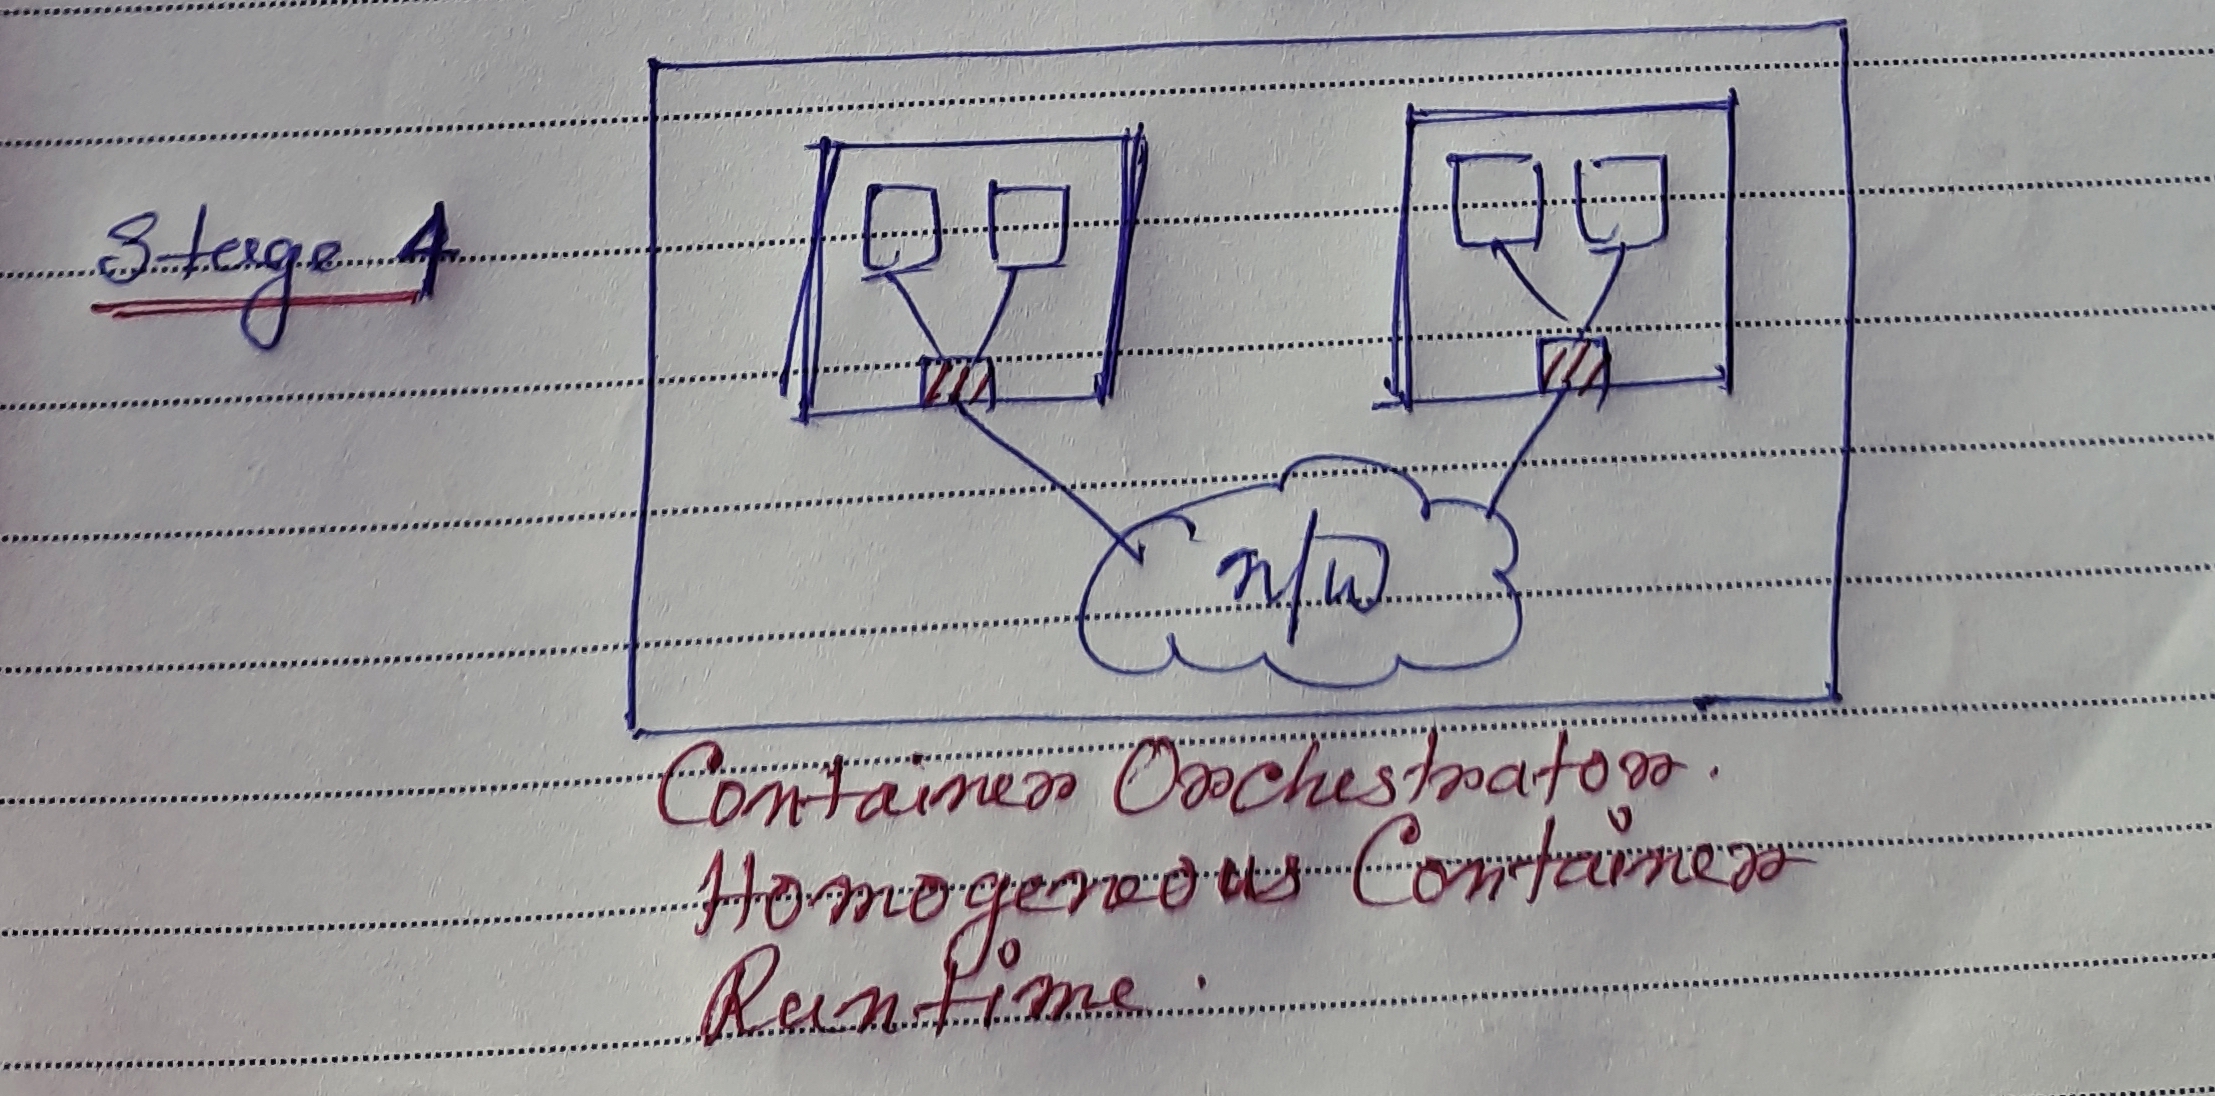 Stage 4
n/w
Container Orchestrator.
Homogeneous Container
Runtime.